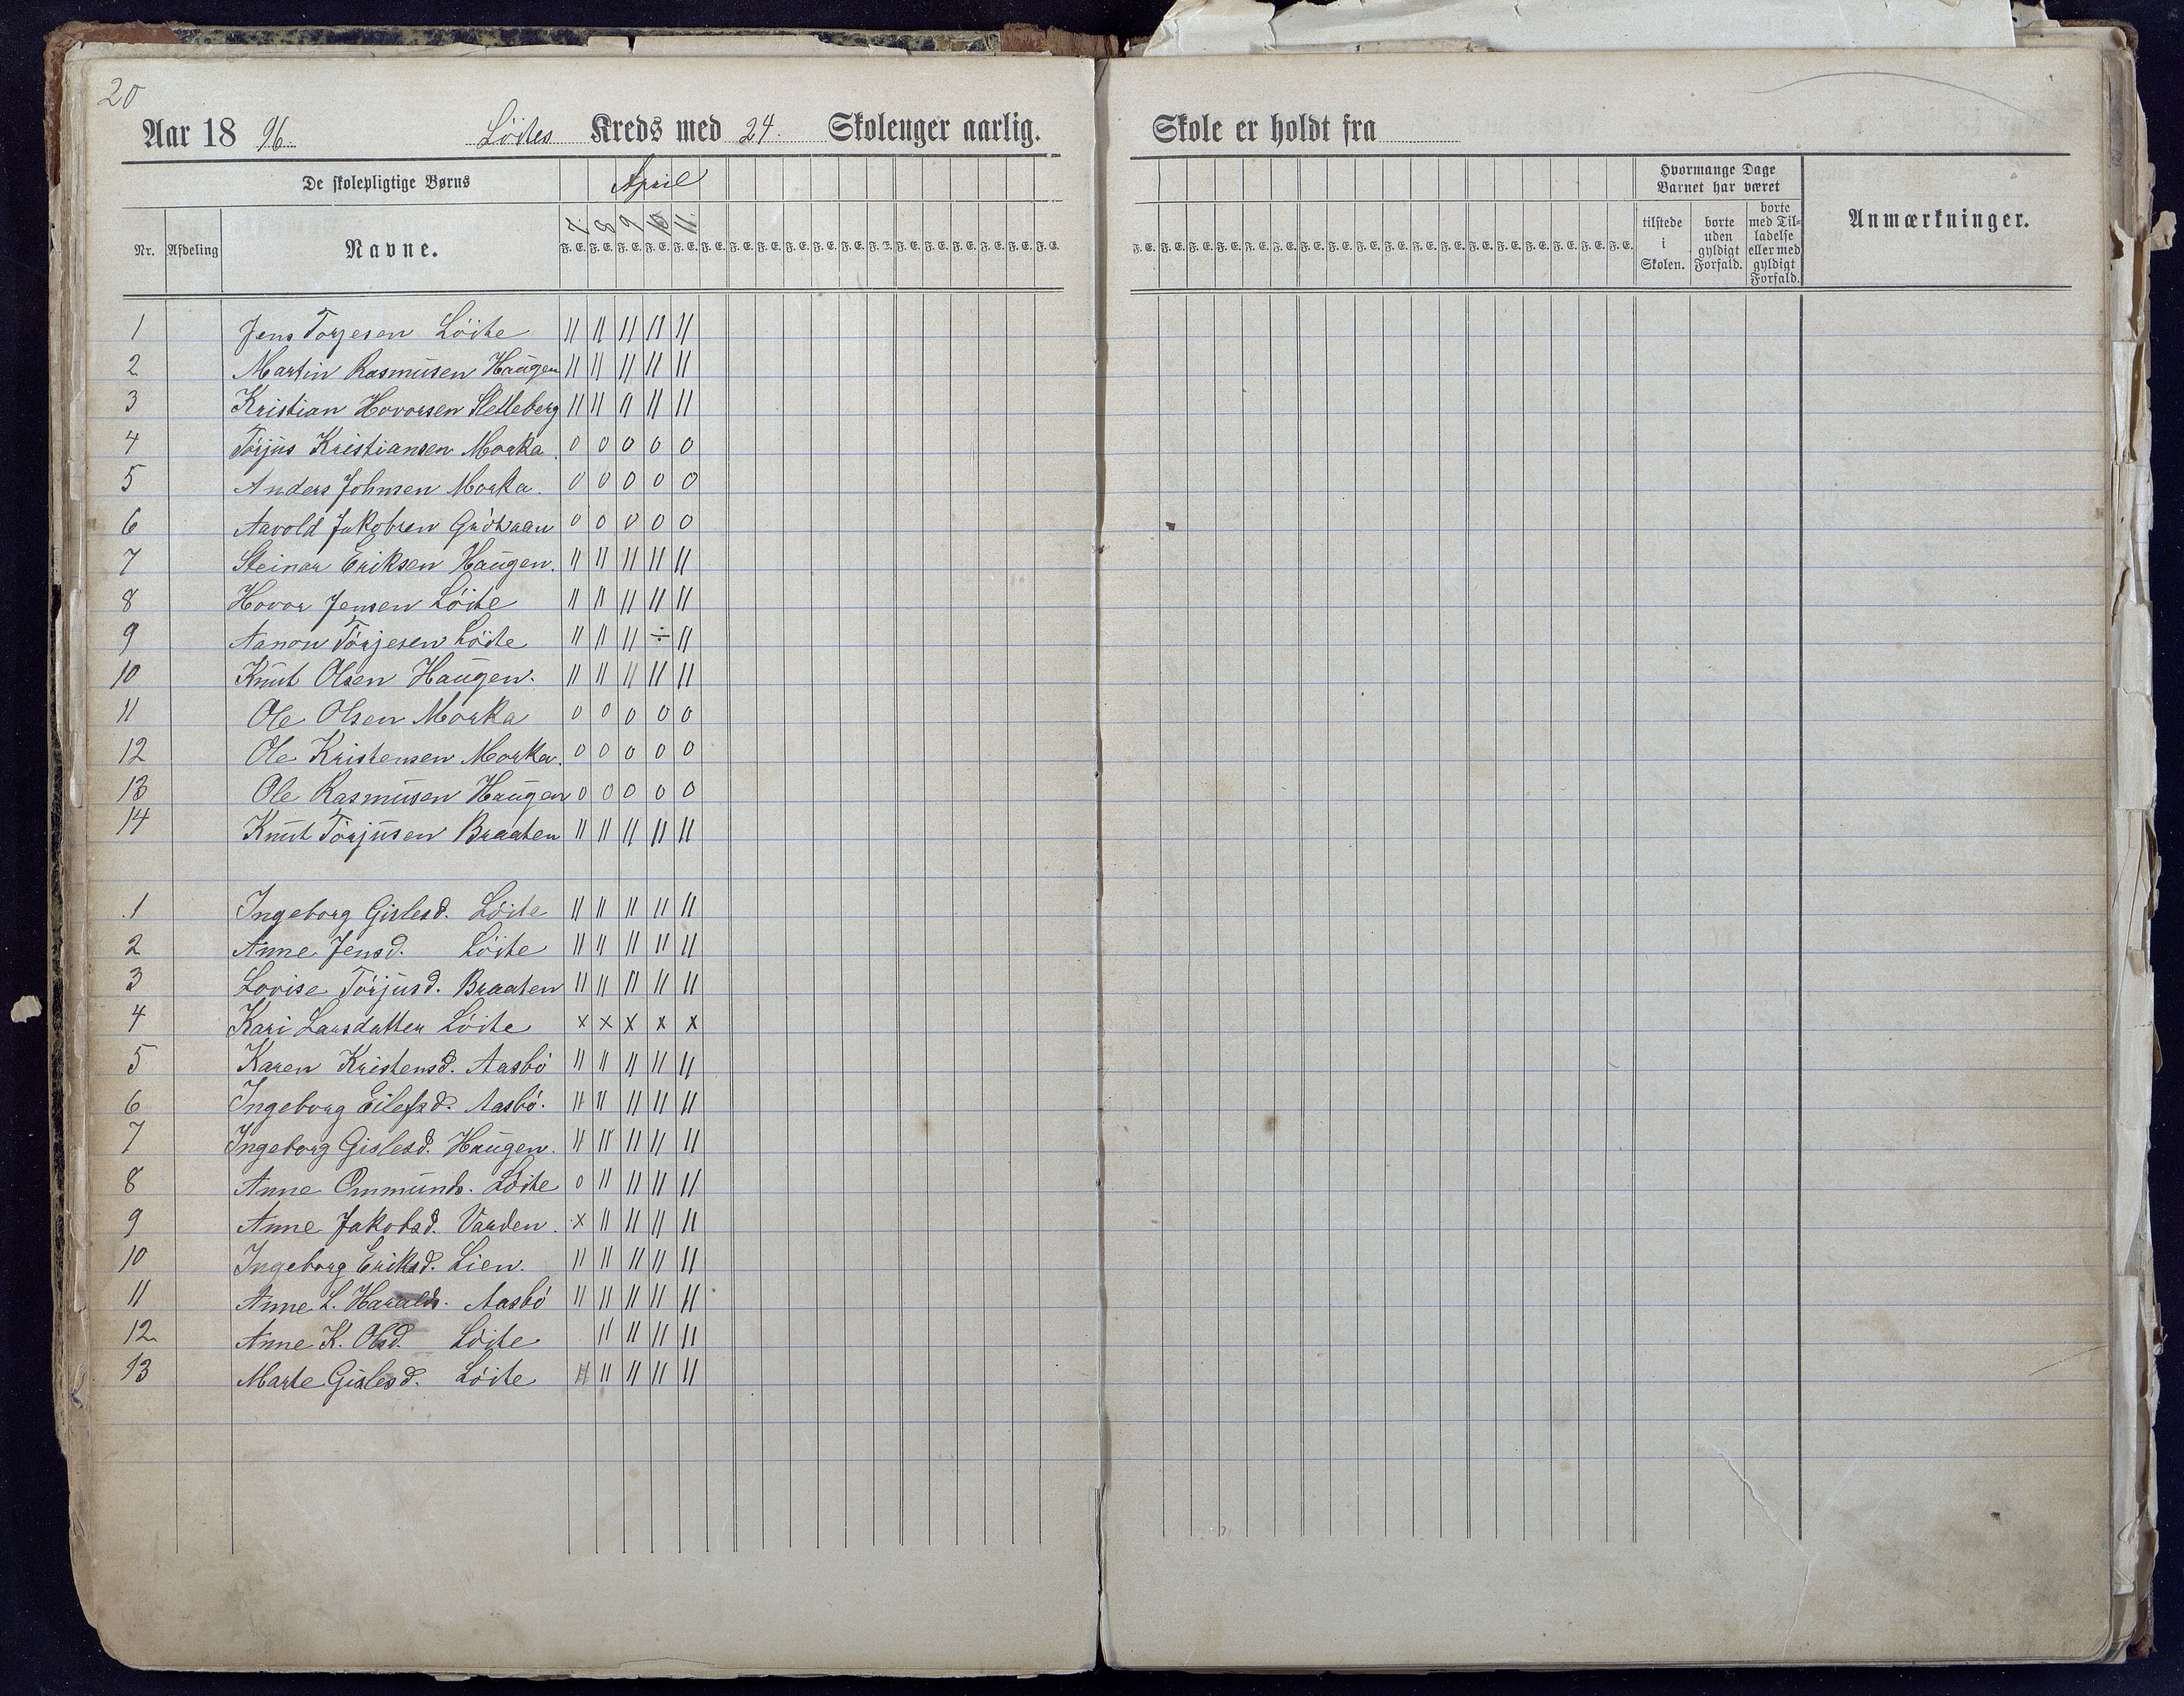 20
Aar 18 96. Löites Kreds med 24. Skoleuger aarlig. Skole er holdt fra
De skolepligtige Børns April Hvormange Dage Barnet har været
Nr. Afdeling Navne. 7. 8 9 10 11. tilstede i Skolen. borte uden gyldigt Forfald. borte med Tilladelse eller med gyldigt Forfald. Anmærkninger.
F. E. F. E. F. E. F. E. F. E. F. E. F. E. F. E. F. E. F. E. F. E. F. E. F. E. F. E. F. E. F. E. F. E. F. E.
1 Jens Torjesen Löite || || || || ||
2 Martin Rasmusen Haugen || || || || ||
3 Kristian Hovorsen Sletleberg || || || || ||
4 Törjus Kristiansen Morka. 0 0 0 0 0
5 Anders Johnsen Morka. 0 0 0 0 0
6 Aavold Jakobsen 0 0 0 0 0
7 Steinar Eriksen Haugen. || || || || ||
8 Hovor Jensen Löite || || || || ||
9 Aanon Törjesen Löite || || || ÷ ||
10 Knut Olsen Haugen. || || || || ||
11 Ole Olsen Morka 0 0 0 0 0
12 Ole Kristensen Morka. 0 0 0 0 0
13 Ole Rasmusen Haugen 0 0 0 0 0
14 Knut Törjusen Braaten || || || || ||
1 Ingeborg Gislesd. Löite || || || || ||
2 Anne Jensd. Löite || || || || ||
3 Lovise Törjusd. Braaten || || || || ||
4 Kari Larsdatter Löite x x x x x
5 Karen Kristensd. Aasbö || || || || ||
6 Ingeborg Eilefsd. Aasbö. || || || || ||
7 Ingeborg Gislesd. Haugen. || || || || ||
8 Anne Ommunds. Löite 0 || || || ||
9 Anne Jakobsd. Varden. x || || || ||
10 Ingeborg Eriksd. Lien. || || || || ||
11 Anne L. Haralds. Aasbö || || || || ||
12 Anne K. Olsd. Löite || || || ||
13 Marte Gislesd. Löite || || || ||